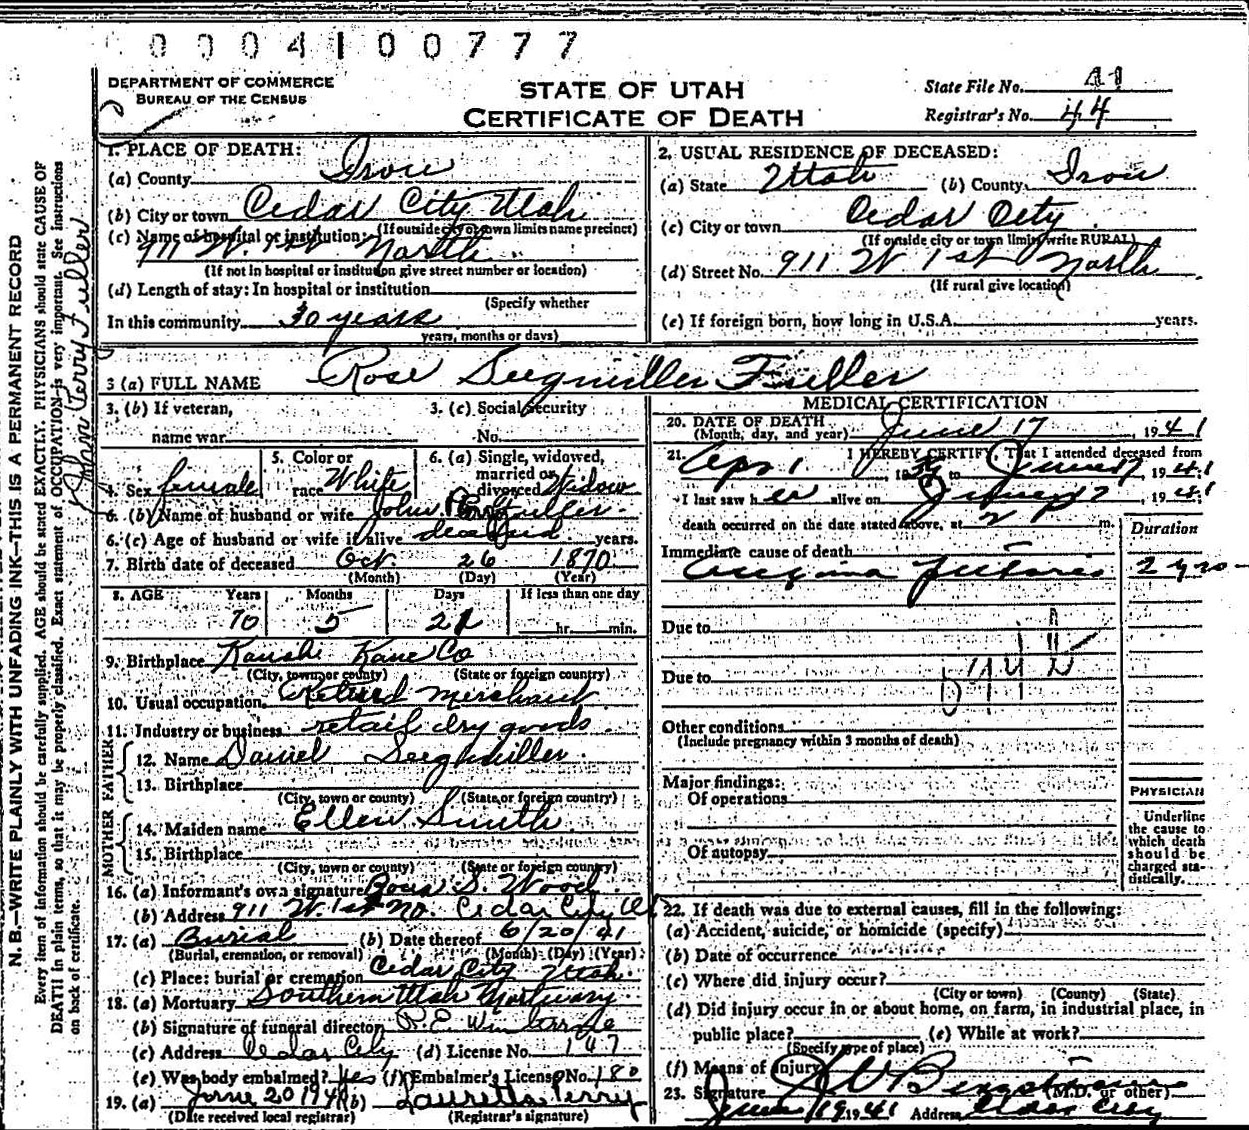 0004100777
DEPARTMENT OF COMMERCE
BUREAU OF THE CENSUS
STATE OF UTAH
CERTIFICATE OF DEATH
State File No. 41
Registrar's No. 44
1. PLACE OF DEATH:
(a) County Iron
(b) City or town Cedar City Utah
(If outside city or town limits name precinct)
(c) Name of hospital or institution:
911 W. 1st North
(If not in hospital or institution give street number or location)
(d) Length of stay: In hospital or institution
(Specify whether
In this community 30 years
years, months or days)
2. USUAL RESIDENCE OF DECEASED:
(a) State Utah (b) County Iron
(c) City or town Cedar City
(If outside city or town limits write RURAL)
(d) Street No. 911 W 1st North
(If rural give location)
(e) If foreign born, how long in U.S.A. years.
3 (a) FULL NAME Rose Seegmiller Fuller
3. (b) If veteran,
name war
3. (c) Social Security
No.
4. Sex female
5. Color or
race White
6. (a) Single, widowed,
married or
divorced Widow
6. (b) Name of husband or wife John Perry Fuller
6. (c) Age of husband or wife if alive deceased years.
7. Birth date of deceased Oct. 26 1870
(Month) (Day) (Year)
8. AGE Years Months Days If less than one day
70 5 21 hr. min.
9. Birthplace Kane Co
(City, town or county) (State or foreign country)
10. Usual occupation Retired merchant
11. Industry or business retail dry goods
FATHER
12. Name Daniel Seegmiller
13. Birthplace
(City, town or county) (State or foreign country)
MOTHER
14. Maiden name Ellen Smith
15. Birthplace
(City, town or county) (State or foreign country)
16. (a) Informant's own signature S. Wood
(b) Address 911 W. 1st No. Cedar City Ut
17. (a) Burial (b) Date thereof 6/20/41
(Burial, cremation, or removal) (Month) (Day) (Year)
(c) Place: burial or cremation Cedar City Utah
18. (a) Mortuary Southern Utah Mortuary
(b) Signature of funeral director
(c) Address Cedar City (d) License No. 147
(e) Was body embalmed? Yes (f) Embalmer's License No. 180
19. (a) June 20 1941 (b) Lauretta Perry
(Date received local registrar) (Registrar's signature)
MEDICAL CERTIFICATION
20. DATE OF DEATH
(Month, day, and year) June 17, 1941
21. I HEREBY CERTIFY, That I attended deceased from
Apr 1 19 to June 17, 1941
I last saw her alive on June 1941
death occurred on the date stated above, at 2 m.
Duration
Immediate cause of death
Angina pectoris 2 yrs
Due to
Due to
Other conditions
(Include pregnancy within 3 months of death)
Major findings:
Of operations
Of autopsy
PHYSICIAN
Underline
the cause to
which death
should be
charged sta-
tistically.
22. If death was due to external causes, fill in the following:
(a) Accident, suicide, or homicide (specify)
(b) Date of occurrence
(c) Where did injury occur?
(City or town) (County) (State)
(d) Did injury occur in or about home, on farm, in industrial place, in
public place? (e) While at work?
(Specify type of place)
(f) Means of injury
23. Signature (M.D. or other)
June 19, 1941 Address Cedar City
N. B.—WRITE PLAINLY WITH UNFADING INK—THIS IS A PERMANENT RECORD
Every item of information should be carefully supplied. AGE should be stated EXACTLY. PHYSICIANS should state CAUSE OF
DEATH in plain terms, so that it may be properly classified. Exact statement of OCCUPATION is very important. See instructions
on back of certificate.
John Perry Fuller